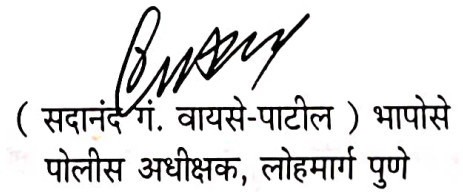 ( सदानंद गं. वायसे-पाटील ) भापोसे
पोलीस अधीक्षक, लोहमार्ग पुणे